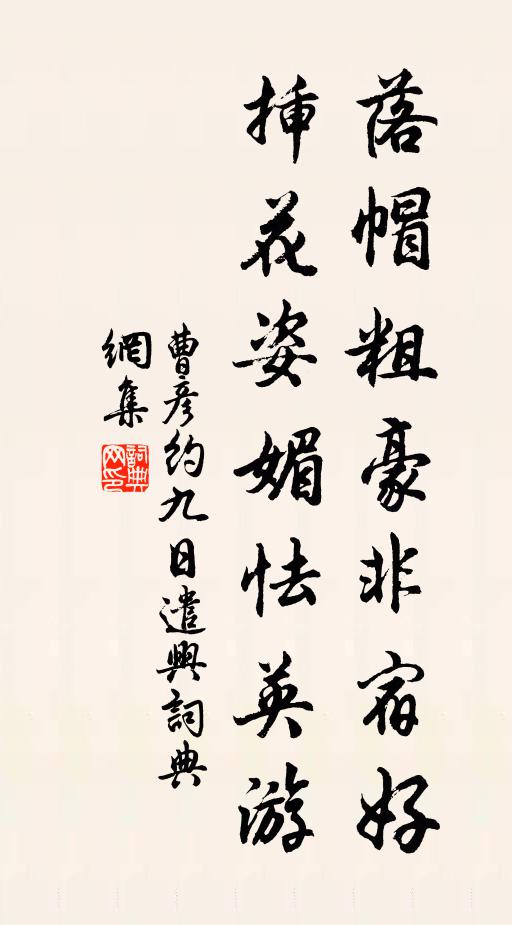 落帽粗豪非宿好
挿花姿媚怯英游
曹彦约九日遣興詞典
網集
詞典
网印